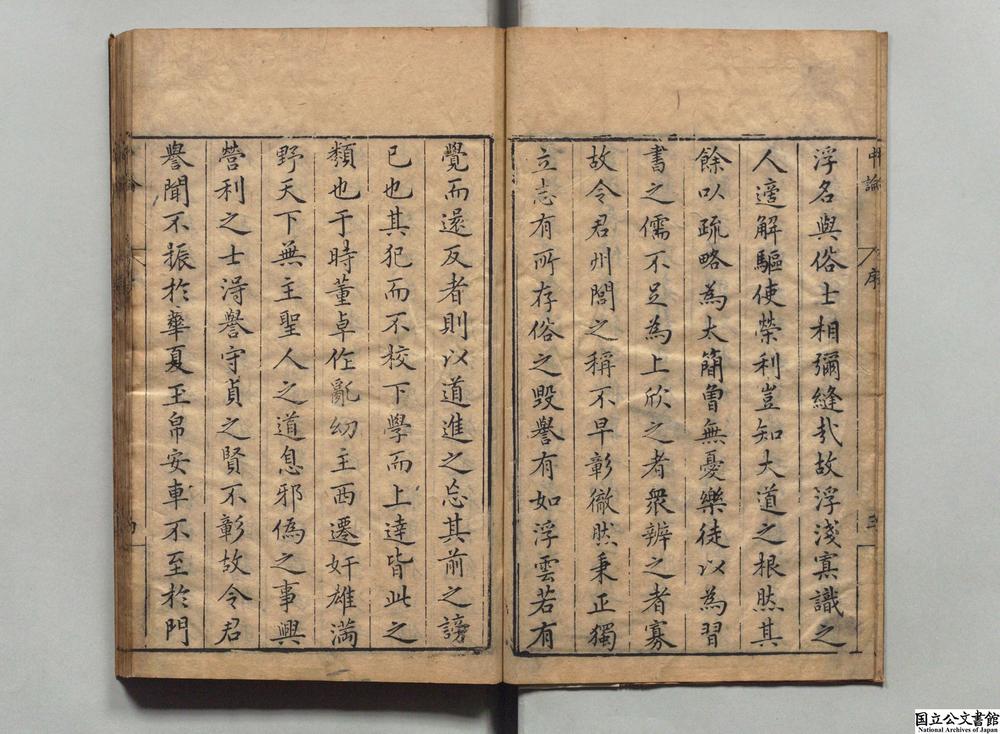 中論
序
三
浮名與俗士相彌縫㢤故浮淺寡識之
人適解驅使榮利豈知大道之根然其
餘以疏略為太簡曾無憂樂徒以為習
書之儒不足為上欣之者衆辨之者寡
故令君州閭之稱不早彰徹然秉正獨
立志有所存俗之毀譽有如浮雲若有
覺而還反者則以道進之忘其前之謗
已也其犯而不校下學而上達皆此之
類也于時董卓作亂幼主西遷奸雄滿
野天下無主聖人之道息邪偽之事興
營利之士得譽守貞之賢不彰故令君
譽聞不振於華夏玉帛安車不至於門
国立公文書館
National Archives of Japan